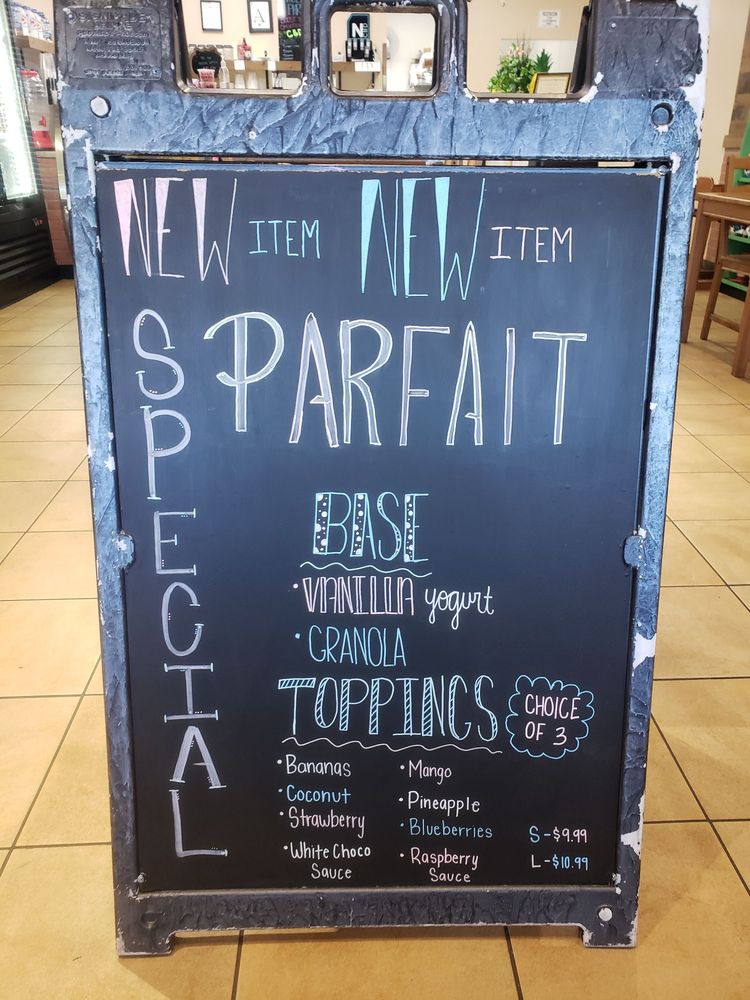 NEW ITEM NEW ITEM
SPECIAL
PARFAIT
BASE
• VANILLA yogurt
• GRANOLA
TOPPINGS
CHOICE
OF 3
• Bananas
• Coconut
• Strawberry
• White Choco
Sauce
• Mango
• Pineapple
• Blueberries
• Raspberry
Sauce
S - $9.99
L - $10.99